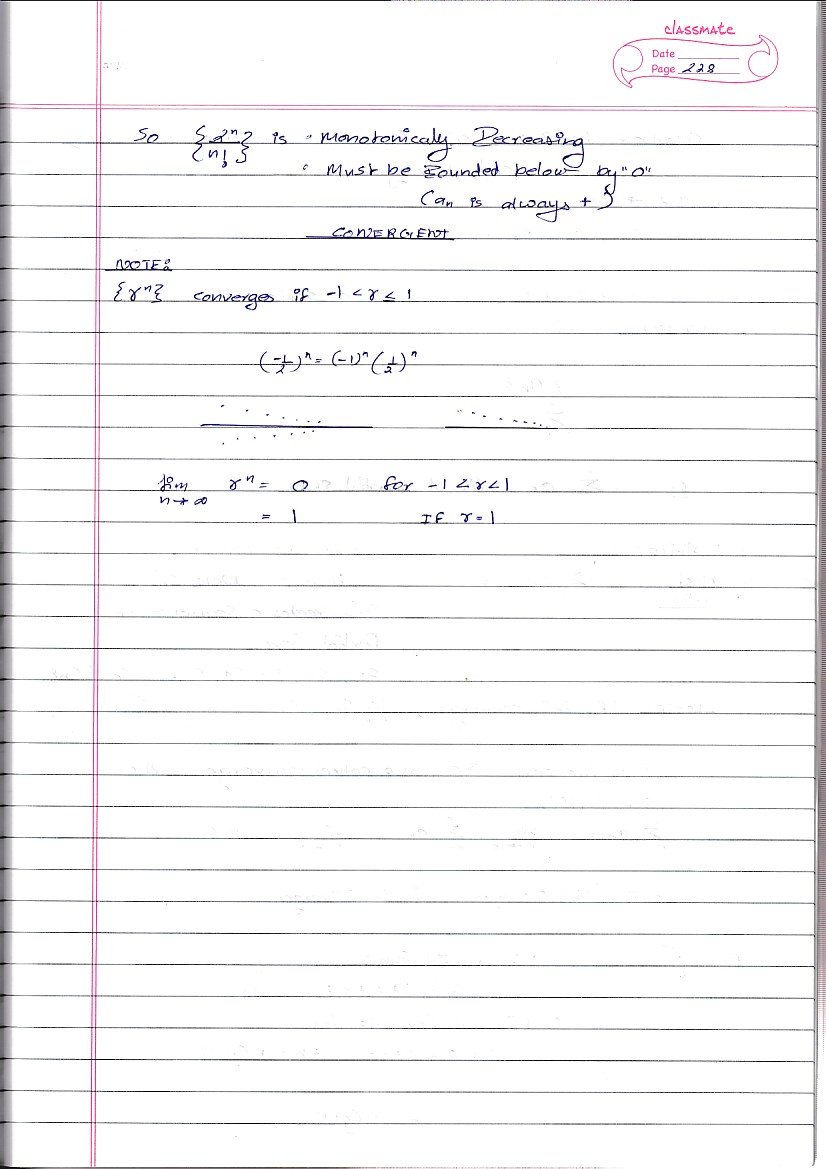 classmate
Date
Page 228
So {2ⁿ/n!} is • Monotonicaly Decreasing
• Must be Bounded below by "0"
(an is always + }
CONVERGENT
NOTE:
{rⁿ} converges if -1 < r ≤ 1
(-1/2)ⁿ = (-1)ⁿ (1/2)ⁿ
lim n→∞ rⁿ = 0 for -1 < r < 1
= 1 IF r = 1